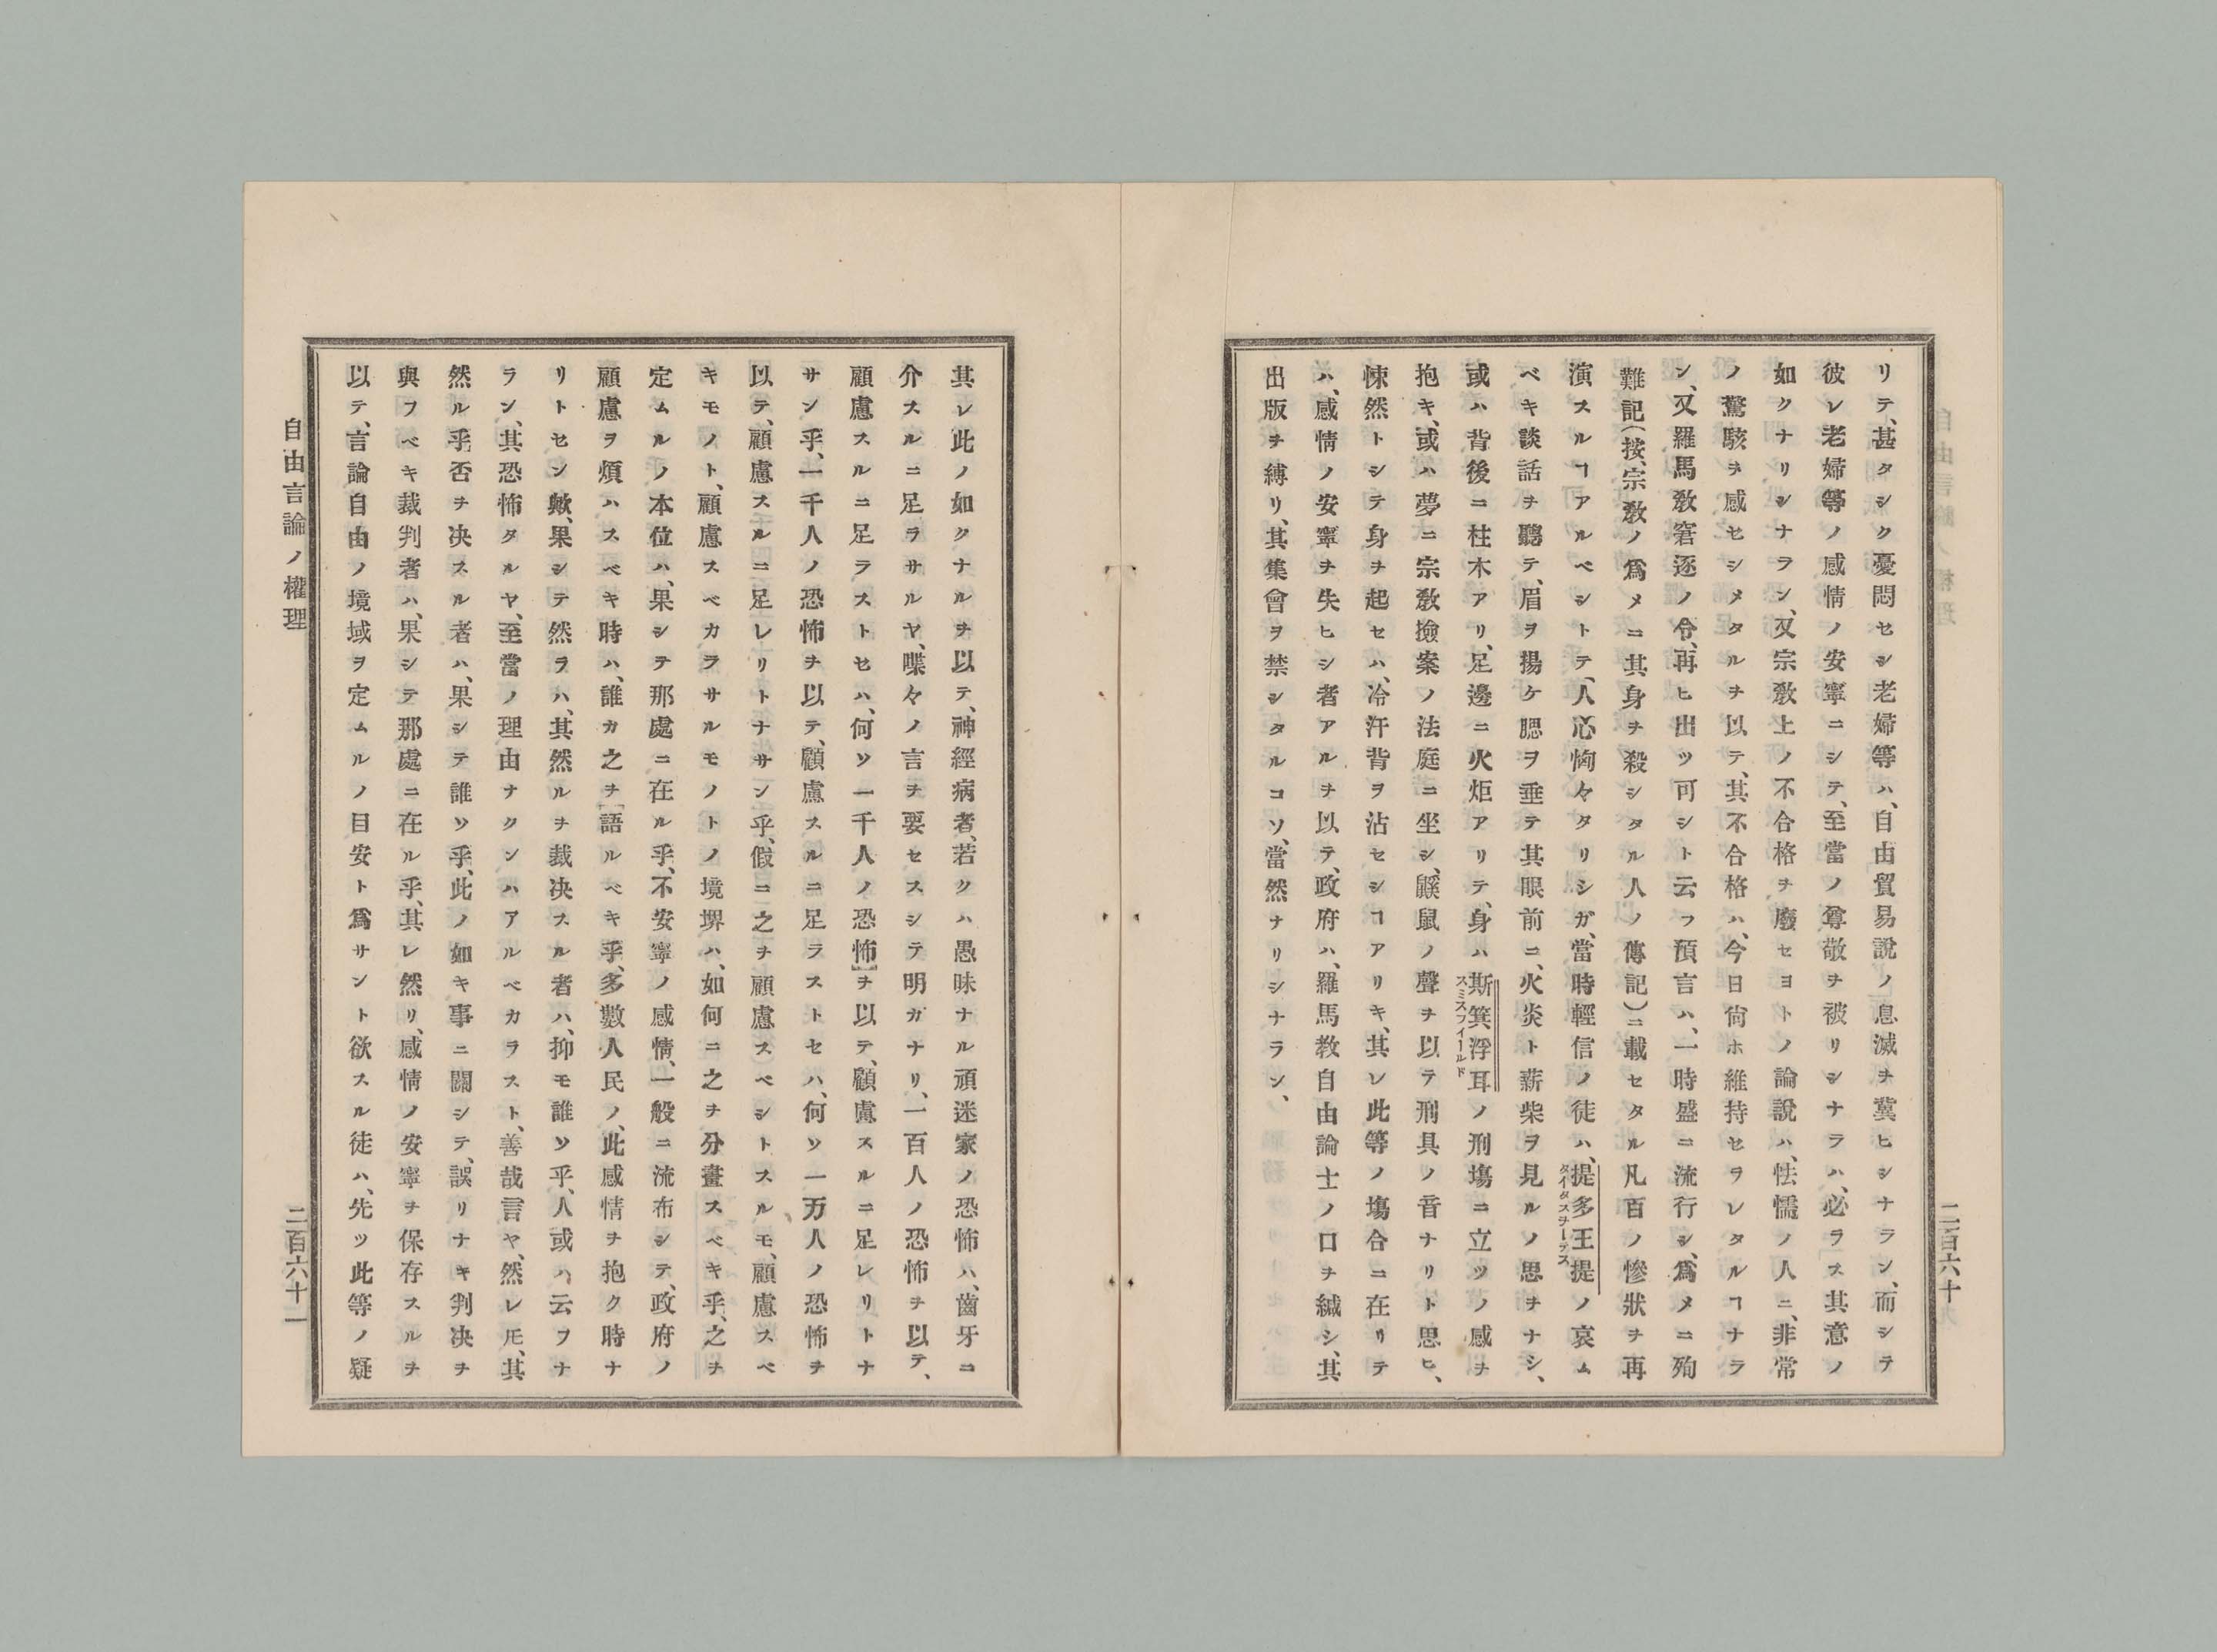 リテ、甚タシク憂悶セシ老婦等ハ、自由貿易說ノ息滅ヲ冀ヒシナラン、而シテ
彼レ老婦等ノ感情ノ安寧ニシテ、至當ノ尊敬ヲ被リシナラハ、必ラス其意ノ
如クナリシナラン、又宗敎上ノ不合格ヲ廢セヨトノ論說ハ、怯懦ノ人ニ、非常
ノ驚駭ヲ感セシメタルヲ以テ、其不合格ハ、今日尙ホ維持セラレタルヿナラ
ン、又羅馬敎窘逐ノ令、再ヒ出ツ可シト云フ預言ハ、一時盛ニ流行シ、爲メニ殉
難記(按、宗敎ノ爲メニ其身ヲ殺シタル人ノ傳記)ニ載セタル凡百ノ慘狀ヲ再
演スルヿアルベシトテ、人心恟々タリシガ、當時輕信ノ徒ハ、提多王提ノ哀ム
タイタスヲーテス
ベキ談話ヲ聽テ、眉ヲ揚ケ腮ヲ垂テ其眼前ニ、火炎ト薪柴ヲ見ルノ思ヲナシ、
或ハ背後ニ柱木アリ、足邊ニ火炬アリテ、身ハ斯箕浮耳ノ刑塲ニ立ツノ感ヲ
スミスフイールド
抱キ、或ハ夢ニ宗敎撿案ノ法庭ニ坐シ、鼷鼠ノ聲ヲ以テ刑具ノ音ナリト思ヒ、
悚然トシテ身ヲ起セハ、冷汗背ヲ沾セシヿアリキ、其レ此等ノ塲合ニ在リテ
ハ、感情ノ安寧ヲ失ヒシ者アルヲ以テ、政府ハ、羅馬敎自由論士ノ口ヲ緘シ、其
出版ヲ縛リ、其集會ヲ禁シタルコソ、當然ナリシナラン、
二百六十
其レ此ノ如クナルヲ以テ、神經病者、若クハ愚昧ナル頑迷家ノ恐怖ハ、齒牙ニ
介スルニ足ラサルヤ、喋々ノ言ヲ要セスシテ明ガナリ、一百人ノ恐怖ヲ以テ、
顧慮スルニ足ラストセハ、何ソ一千人ノ恐怖]ヲ以テ、顧慮スルニ足レリトナ
サン乎、一千人ノ恐怖ヲ以テ、顧慮スルニ足ラストセハ、何ソ一万人ノ恐怖ヲ
以テ、顧慮スルニ足レリトナサン乎、假ニ之ヲ顧慮スベシトスルモ、顧慮スベ
キモノト、顧慮スベカラサルモノトノ境堺ハ、如何ニ之ヲ分畫スベキ乎、之ヲ
定ムルノ本位ハ、果シテ那處ニ在ル乎、不安寧ノ感情、一般ニ流布シテ、政府ノ
顧慮ヲ煩ハスベキ時ハ、誰カ之ヲ[語ルベキ乎、多數人民ノ、此感情ヲ抱ク時ナ
リトセン歟、果シテ然ラハ、其然ルヲ裁决スル者ハ、抑モ誰ソ乎、人或ハ云フナ
ラン、其恐怖タルヤ、至當ノ理由ナクンハアルベカラスト、善哉言ヤ、然レ𪜈、其
然ル乎否ヲ决スル者ハ、果シテ誰ソ乎、此ノ如キ事ニ關シテ、誤リナキ判决ヲ
與フベキ裁判者ハ、果シテ那處ニ在ル乎、其レ然リ、感情ノ安寧ヲ保存スルヲ
以テ、言論自由ノ境域ヲ定ムルノ目安ト爲サント欲スル徒ハ、先ツ此等ノ疑
自由言論ノ權理
二百六十一